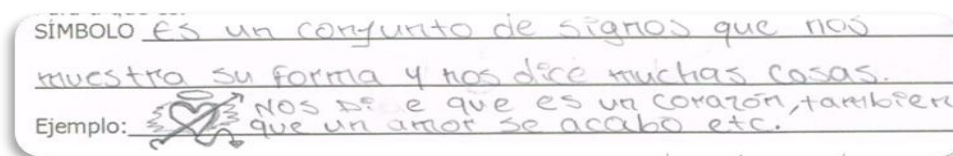 SÍMBOLO Es un conjunto de signos que nos
muestra su forma y nos dice muchas cosas.
Nos Di e que es un corazón, tambien
Ejemplo: que un amor se acabo etc.